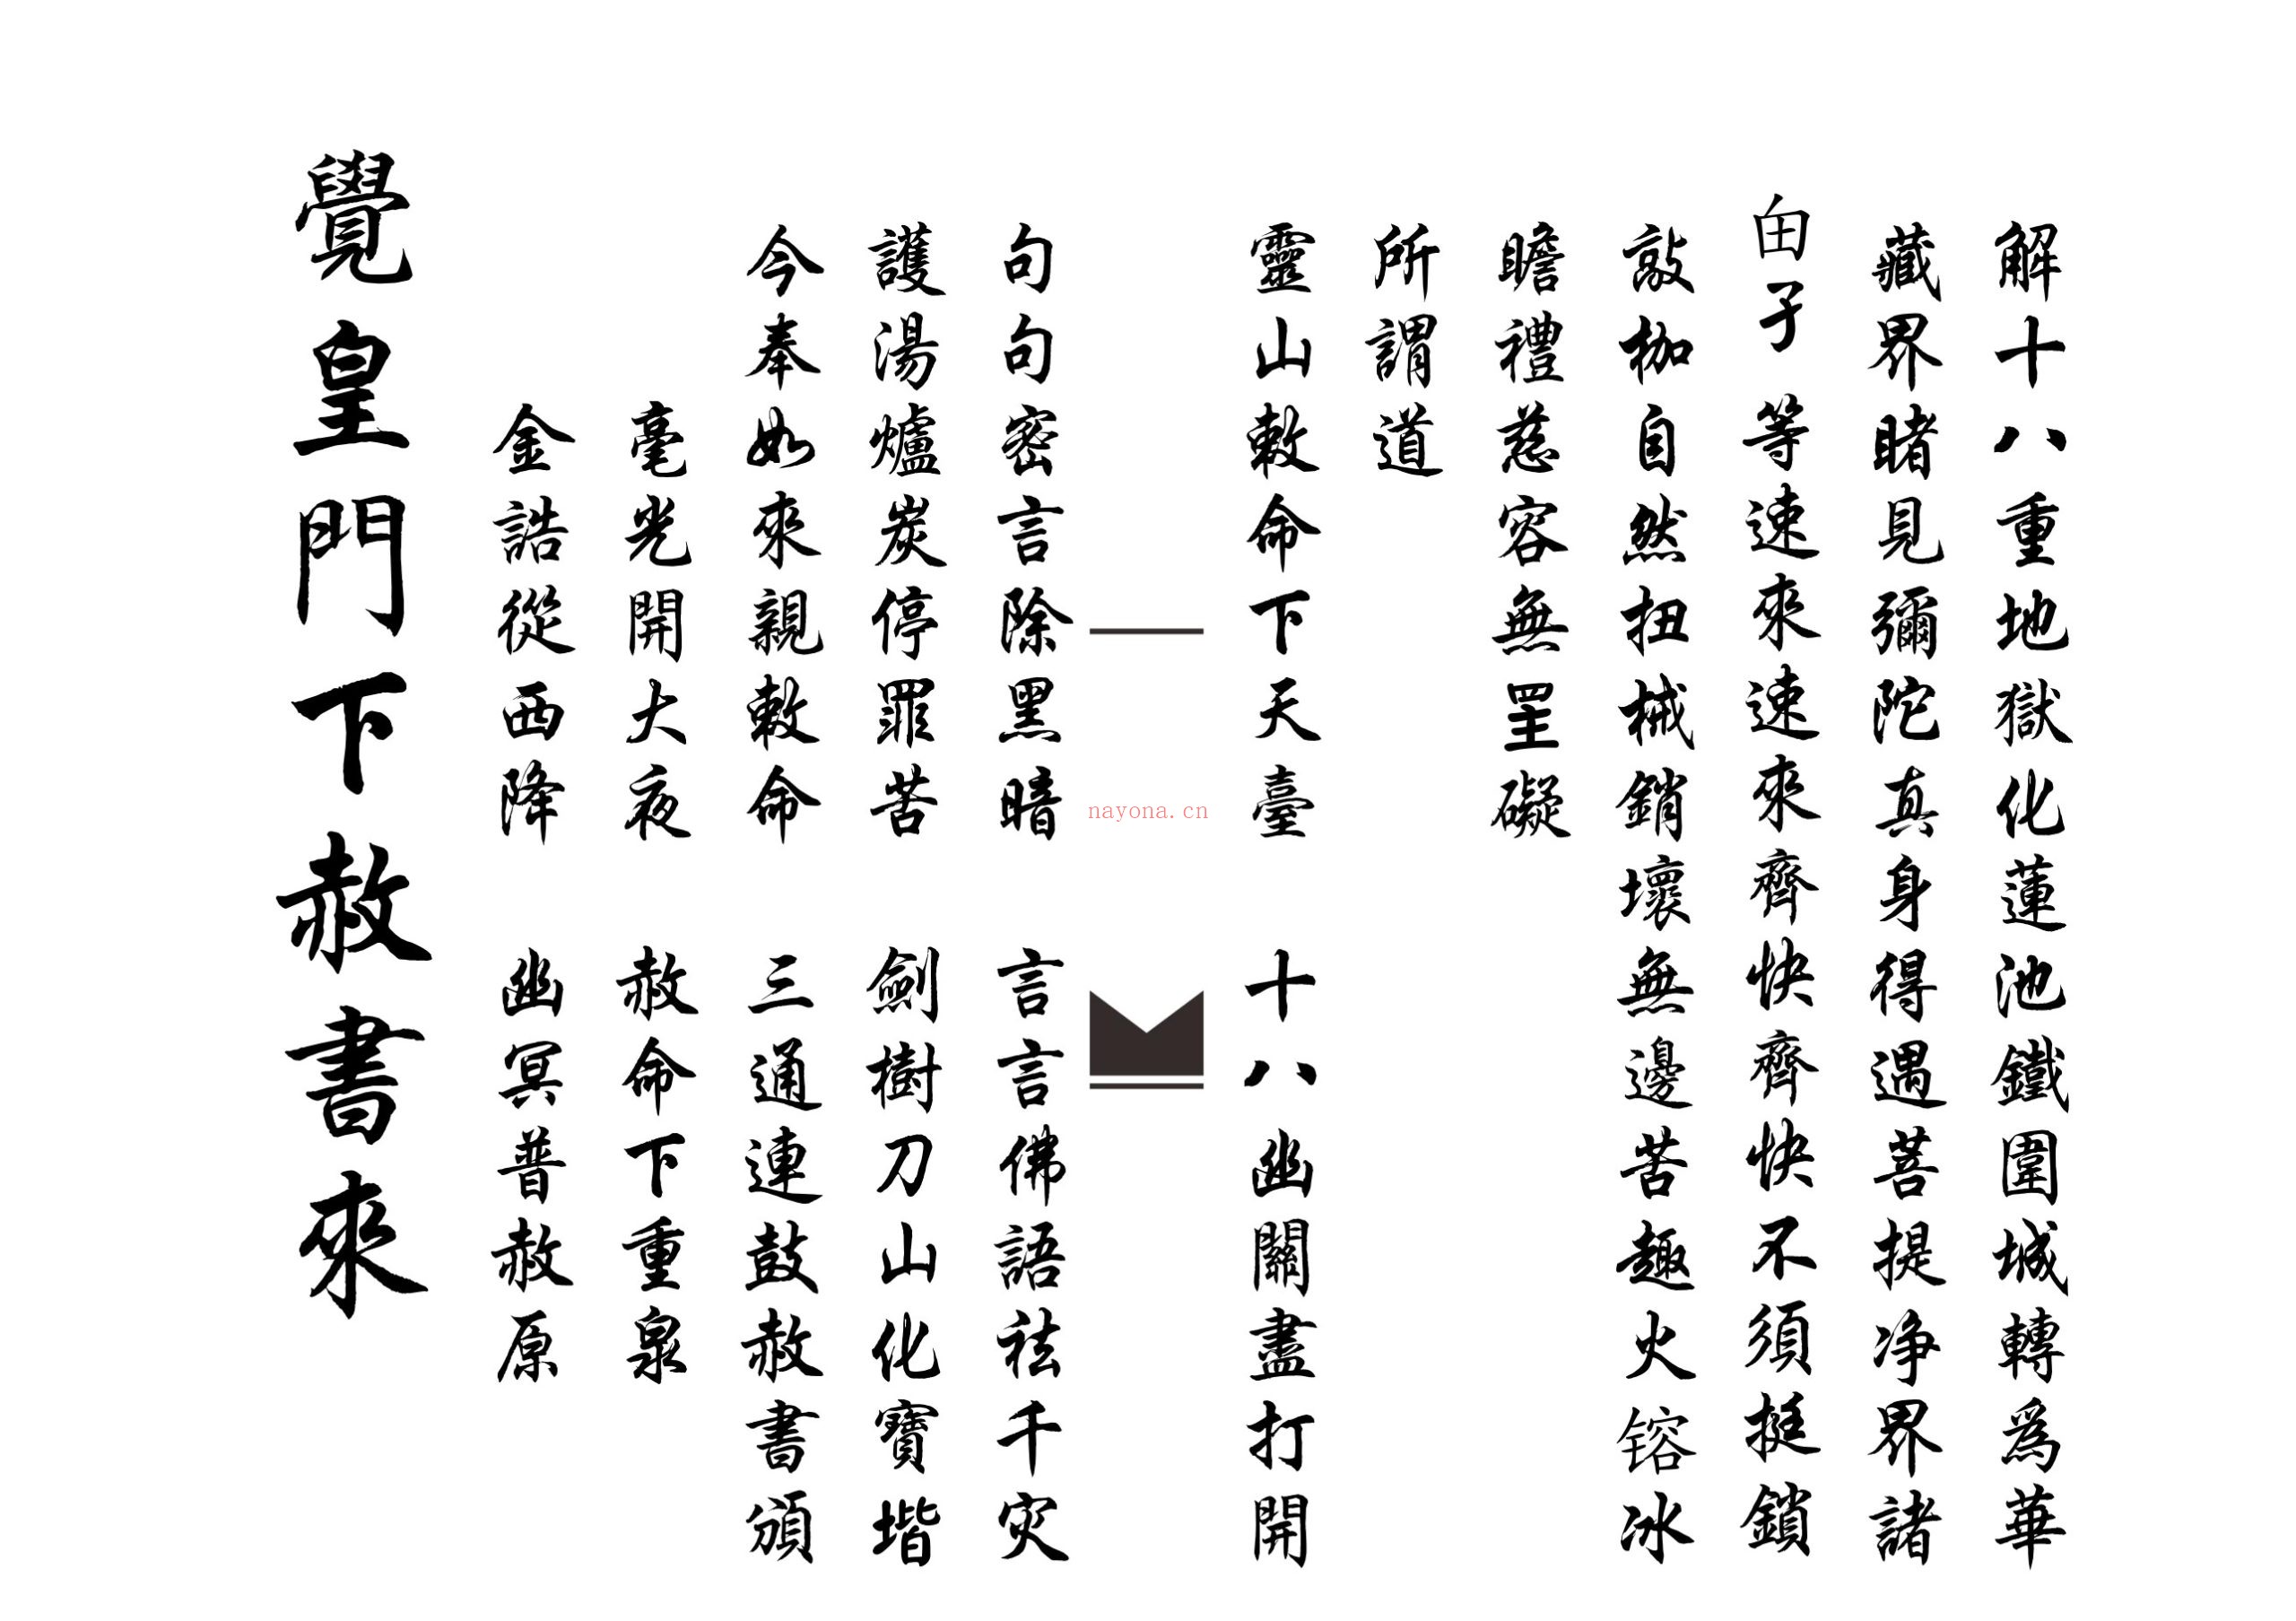 解十八重地獄化蓮池鐵圍城轉爲華
藏界睹見彌陀真身得遇菩提净界諸
甶孑等速來速來齊快齊快不須挺鎖
敲枷自然扭械銷壞無邊苦趣火镕冰
瞻禮慈容無罣礙
所謂道
靈山敕命下天臺 十八幽關盡打開
nayona.cn
句句密言除黑暗 言言佛語祛千灾
護湯爐炭停罪苦 劍樹刀山化寶堦
今奉如來親敕命 三通連鼓赦書頒
毫光開大夜 赦命下重泉
金誥從西降 幽冥普赦原
覺皇門下赦書來